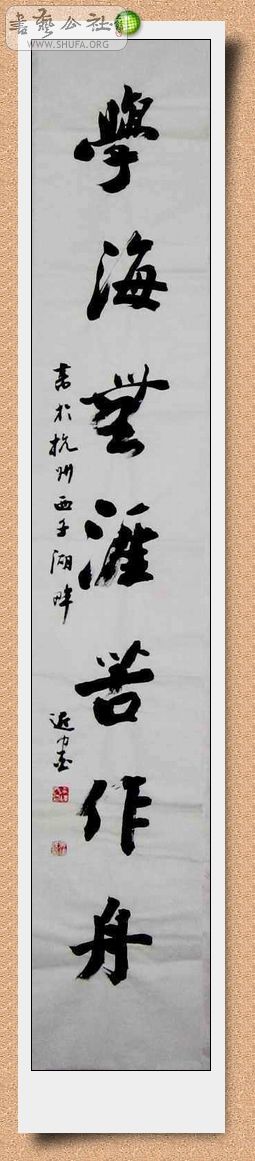 書藝公社
WWW.SHUFA.ORG
學海無涯苦作舟
書於杭州西子湖畔